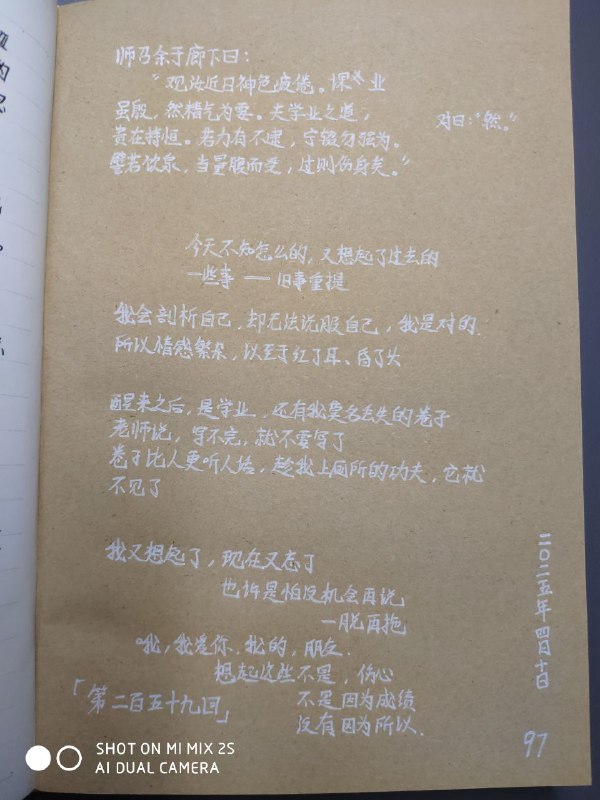 师召余于廊下曰：
“观汝近日神色疲倦。课业
虽殷，然精气为要。夫学业之道，
贵在持恒。若力有不逮，宁辍勿强为。
譬若饮泉，当量腹而受，过则伤身矣。”
对曰：“然。”
今天不知怎么的，又想起了过去的
一些事 —— 旧事重提
我会剖析自己，却无法说服自己，我是对的.
所以情感繁杂，以至于红了耳、昏了头
醒来之后，是学业，还有我莫名丢失的卷子
老师说，写不完，就不要写了
卷子比人更听人话，趁我上厕所的功夫，它就
不见了
我又想起了，现在又忘了
也许是怕没机会再说
一脱再拖
哦，我爱你.我的，朋友.
想起这些不是，伤心
不是因为成绩
没有因为所以.
「第二百五十九回」
二〇二五年四月十日
97
SHOT ON MI MIX 2S
AI DUAL CAMERA